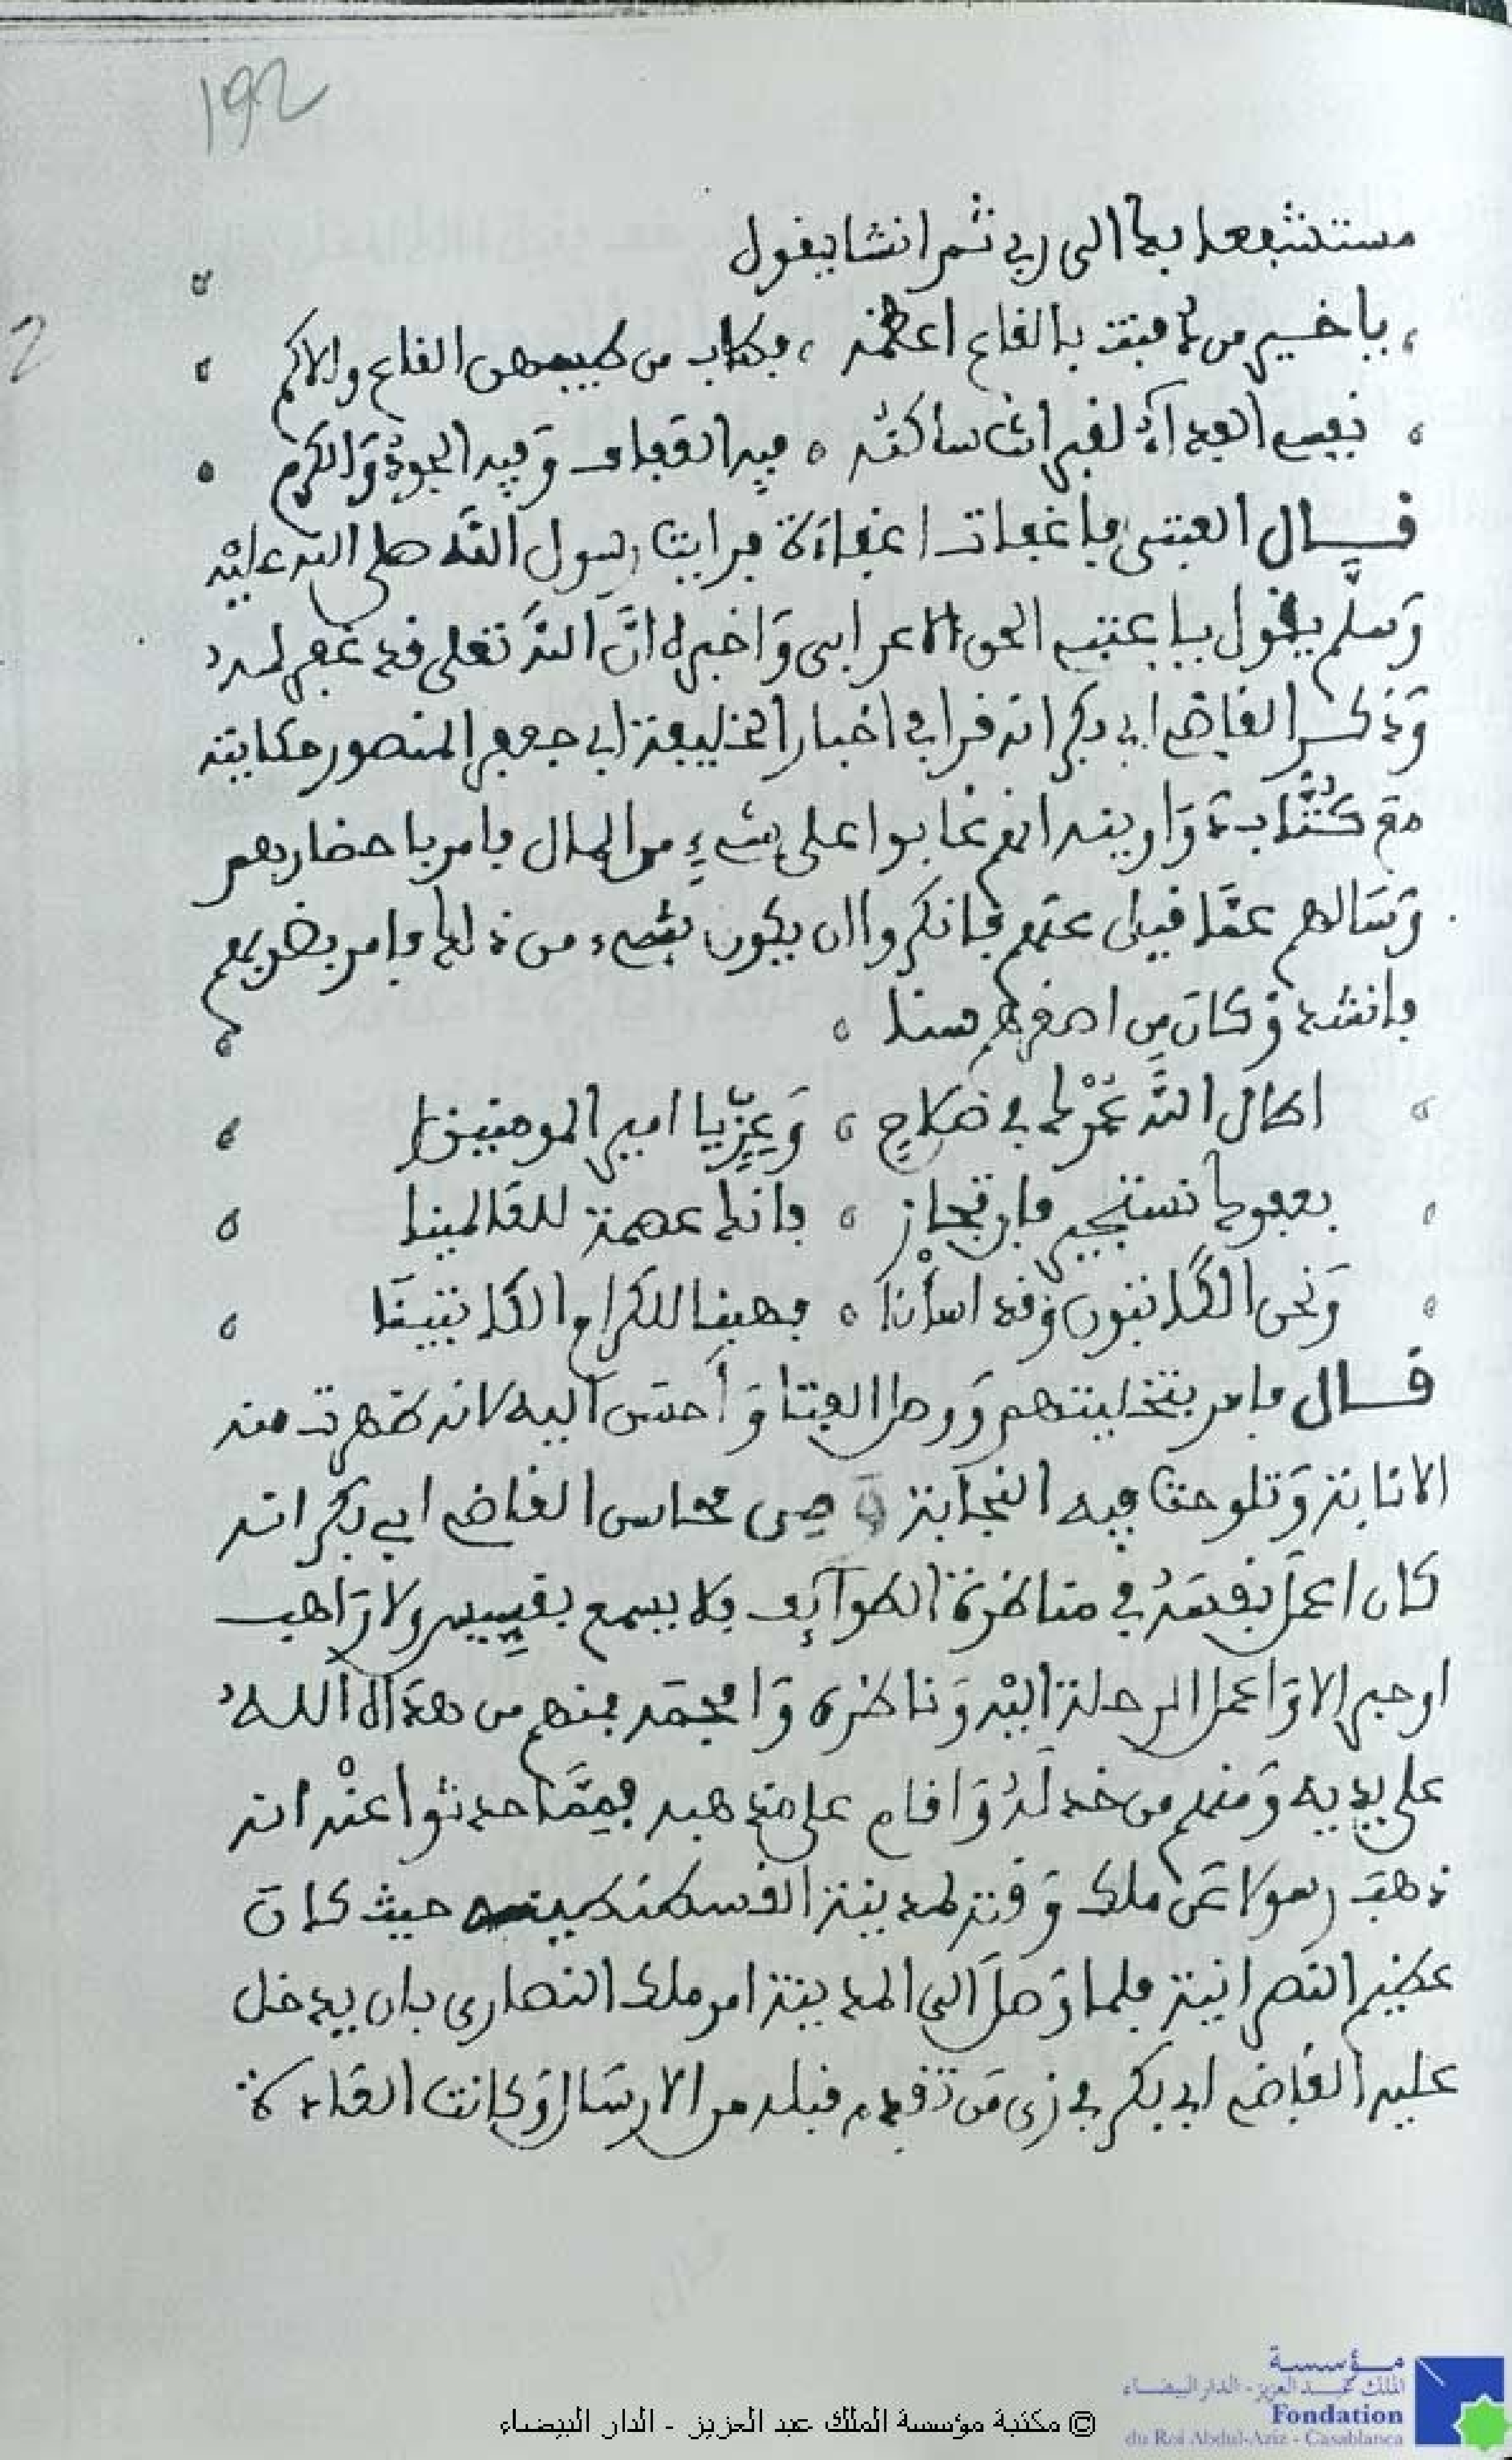 192
مستشفعا بك الى ربي ثم انشا يقول
يا خير من دفنت بالقاع اعظمه ، فطاب من طيبهن القاع والاكم
نفسي الفداء لقبر انت ساكنه ه فيه العفاف وَفيه الجودُ وَالكرم
2
قال العتبي فاغفات اغفاءة فرايت رسول اللَّه صلى الله عليْه
وَسلم يقول يا عتبي الحق الاعرابي وَاخبره انَّ اللهَ تعلى قد غفر له
وَذكر القاضي ابي بكر انه قرا في اخبار الخليفة ابي جعفر المنصور حكايته
مع كُتَّاب دَوَاوينه انهم غابوا على شيءٍ من المال فامر باحضارهم
وَسَالهم عمَّا قيل عنهم فانكروا ان يكون شيء من ذلك فامر بضربهم
فانشد وَكان من اصغرهم سنا ه
اطال اللَّه عُمْرك في صلاحٍ ه وَعِزٍّ يا امير المومنينا
بعفوك نستجير فان تجاز ه فانك عصمة للعالمينا
وَنحن الكاتبون وَقد اسأْنا ه فهبنا للكرام الكاتبينَا
قال فامر بتخليتهم وَوصل الفتا وَأحسَن اليه لانه ظهرت منه
الانابة وَتلوحت فيه النجابة من محاسن القاضي ابي بكر انه
كان اعمل نفسَهُ في مناظرة الطوآئِف فلا يسمع بقسيس ولا رَاهب
او حبر الا وَاعمل الرحلة اليْه وَناظره وَافحمَه فمنهم من هدَاه اللهُ
على يديه وَمنهم من خذلَهُ وَاقام على مذهبه فمِمَّا حدثوا عنْه انه
ذهبَ رسولا عَن ملك وَقته لمدينة القسطنطينيه حيث كان
عظيم النصرانية فلما وَصل الى المدينة امر ملك النصارى بان يدخل
عليه القاضي ابي بكر في زي مَن تقدم قبله من الارسَال وَكانت العادة
مؤسسة
الملك عبد العزيز - الدار البيضاء
Fondation
du Roi Abdul-Aziz - Casablanca
© مكتبة مؤسسة الملك عبد العزيز - الدار البيضاء